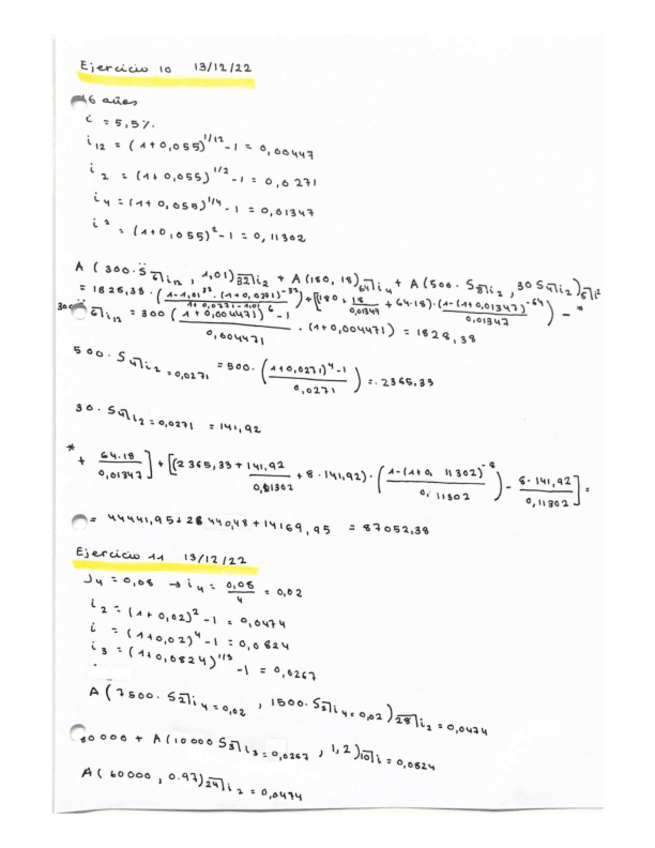 Ejercicio 10 13/12/22
16 años
i = 5,5%
i₁₂ = (1+0,055)^1/12 -1 = 0,00447
i₂ = (1+0,055)^1/2 -1 = 0,0271
i₄ = (1+0,055)^1/4 -1 = 0,01347
i² = (1+0,055)² -1 = 0,11302
A (300·S̈6̅|i₁₂ , 1,01)32̅|i₂ + A(180, 18)64̅|i₄ + A(500·S4̅|i₂ , 30 S4̅|i₂)8̅|i²
= 1828,38·(1-1,01^32·(1+0,0271)^-32 / 1+0,0271-1,01) + [(180+18/0,01347 + 64·18)·(1-(1+0,01347)^-64 / 0,01347) - *
300 S̈6̅|i₁₂ = 300 ((1+0,004471)^6 -1 / 0,004471)·(1+0,004471) = 1828,38
500·S4̅|i₂=0,0271 = 500·((1+0,0271)^4 -1 / 0,0271) = 2365,33
30·S4̅|i₂=0,0271 = 141,92
* + 64·18/0,01347] + [(2365,33+141,92/0,11302 + 8·141,92)·(1-(1+0,11302)^-8 / 0,11302) - 8·141,92/0,11302] =
= 44441,95+28440,48+14169,95 = 87052,38
Ejercicio 11 13/12/22
J₄ = 0,08 → i₄ = 0,08/4 = 0,02
i₂ = (1+0,02)² -1 = 0,0474
i = (1+0,02)^4 -1 = 0,0824
i₃ = (1+0,0824)^1/3 -1 = 0,0267
A (7500·S2̅|i₄=0,02 , 1500·S2̅|i₄=0,02)28̅|i₂=0,0474
+ A(10000 S3̅|i₃=0,0267 , 1,2)10̅|i=0,0824
A(60000, 0.97)24̅|i₂=0,0474